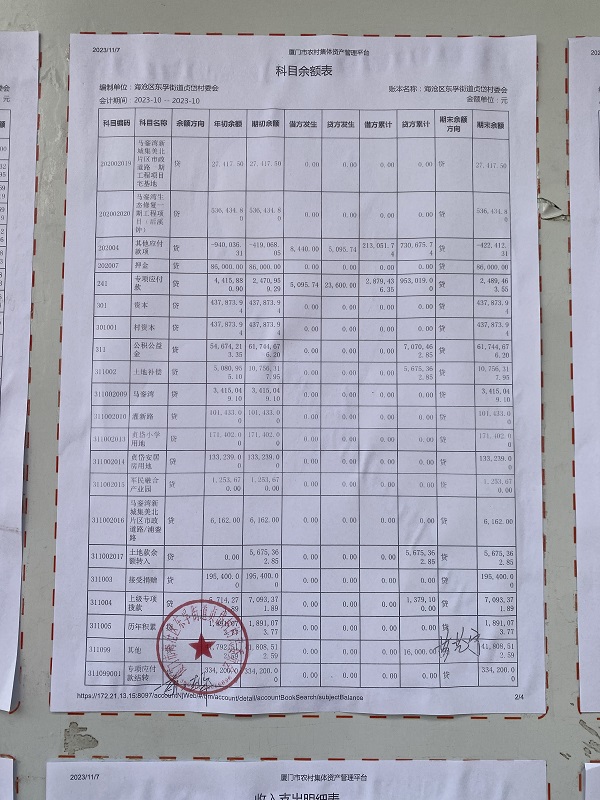 2023/11/7 厦门市农村集体资产管理平台
科目余额表
编制单位：海沧区东孚街道贞岱村委会 账本名称：海沧区东孚街道贞岱村委会
会计期间：2023-10 -- 2023-10 金额单位：元
科目编码 科目名称 余额方向 年初余额 期初余额 借方发生 贷方发生 借方累计 贷方累计 期末余额方向 期末余额
202002019 马銮湾新城集美北片区市政道路 期工程项目宅基地 贷 27,417.50 27,417.50 0.00 0.00 0.00 0.00 贷 27,417.50
202002020 马銮湾生态修复一期工程项目（后溪钟） 贷 536,434.80 536,434.80 0.00 0.00 0.00 0.00 贷 536,434.80
202004 其他应付款项 贷 -940,036.31 -419,068.05 8,440.00 5,095.74 213,051.74 730,675.74 贷 -422,412.31
202007 押金 贷 86,000.00 86,000.00 0.00 0.00 0.00 0.00 贷 86,000.00
241 专项应付款 贷 4,415,880.90 2,470,959.29 5,095.74 23,600.00 2,879,436.35 953,019.00 贷 2,489,463.55
301 资本 贷 437,873.94 437,873.94 0.00 0.00 0.00 0.00 贷 437,873.94
301001 村资本 贷 437,873.94 437,873.94 0.00 0.00 0.00 0.00 贷 437,873.94
311 公积公益金 贷 54,674,213.35 61,744,676.20 0.00 0.00 0.00 7,070,462.85 贷 61,744,676.20
311002 土地补偿 贷 5,080,955.10 10,756,317.95 0.00 0.00 0.00 5,675,362.85 贷 10,756,317.95
311002009 马銮湾 贷 3,415,049.10 3,415,049.10 0.00 0.00 0.00 0.00 贷 3,415,049.10
311002010 灌新路 贷 101,433.00 101,433.00 0.00 0.00 0.00 0.00 贷 101,433.00
311002013 贞岱小学用地 贷 171,402.00 171,402.00 0.00 0.00 0.00 0.00 贷 171,402.00
311002014 贞岱安居房用地 贷 133,239.00 133,239.00 0.00 0.00 0.00 0.00 贷 133,239.00
311002015 军民融合产业园 贷 1,253,670.00 1,253,670.00 0.00 0.00 0.00 0.00 贷 1,253,670.00
311002016 马銮湾新城集美北片区市政道路/浦銮路 贷 6,162.00 6,162.00 0.00 0.00 0.00 0.00 贷 6,162.00
311002017 土地款余额转入 贷 0.00 5,675,362.85 0.00 0.00 0.00 5,675,362.85 贷 5,675,362.85
311003 接受捐赠 贷 195,400.00 195,400.00 0.00 0.00 0.00 0.00 贷 195,400.00
311004 上级专项拨款 贷 5,714,271.89 7,093,371.89 0.00 0.00 0.00 1,379,100.00 贷 7,093,371.89
311005 历年积累 贷 1,891,073.77 1,891,073.77 0.00 0.00 0.00 0.00 贷 1,891,073.77
311099 其他 贷 41,808,512.59 0.00 0.00 0.00 16,000.00 41,808,512.59
311099001 专项应付款结转 贷 334,200.00 334,200.00 0.00 0.00 0.00 0.00 贷 334,200.00
2/4
2023/11/7 厦门市农村集体资产管理平台
收入支出明细表